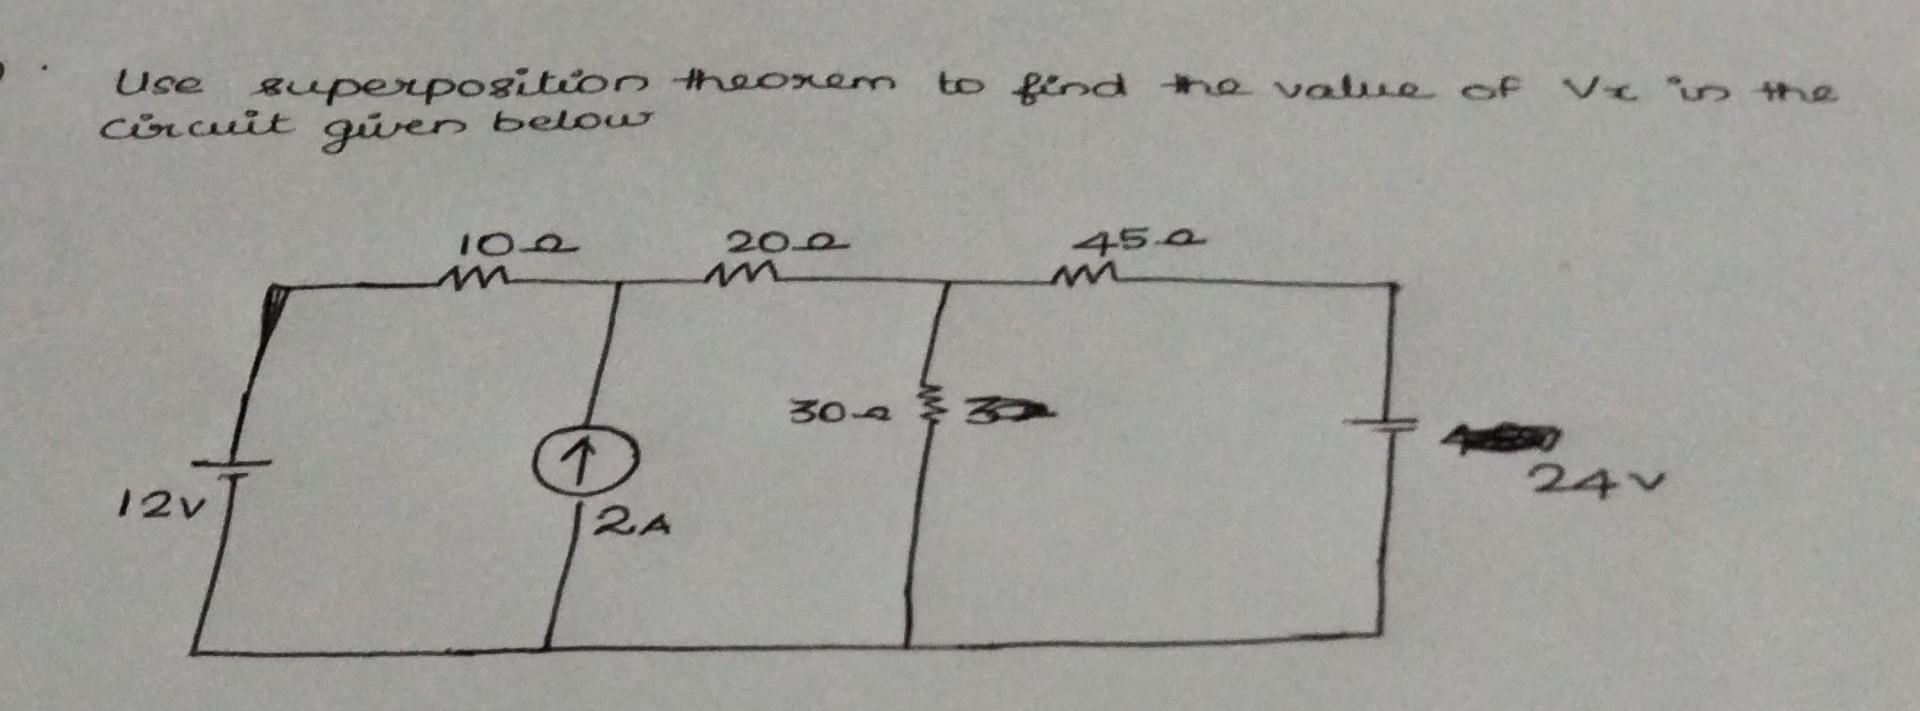 Use superposition theorem to find the value of Vx in the
circuit given below
10Ω 20Ω 45Ω
30Ω
24V
12V
2A